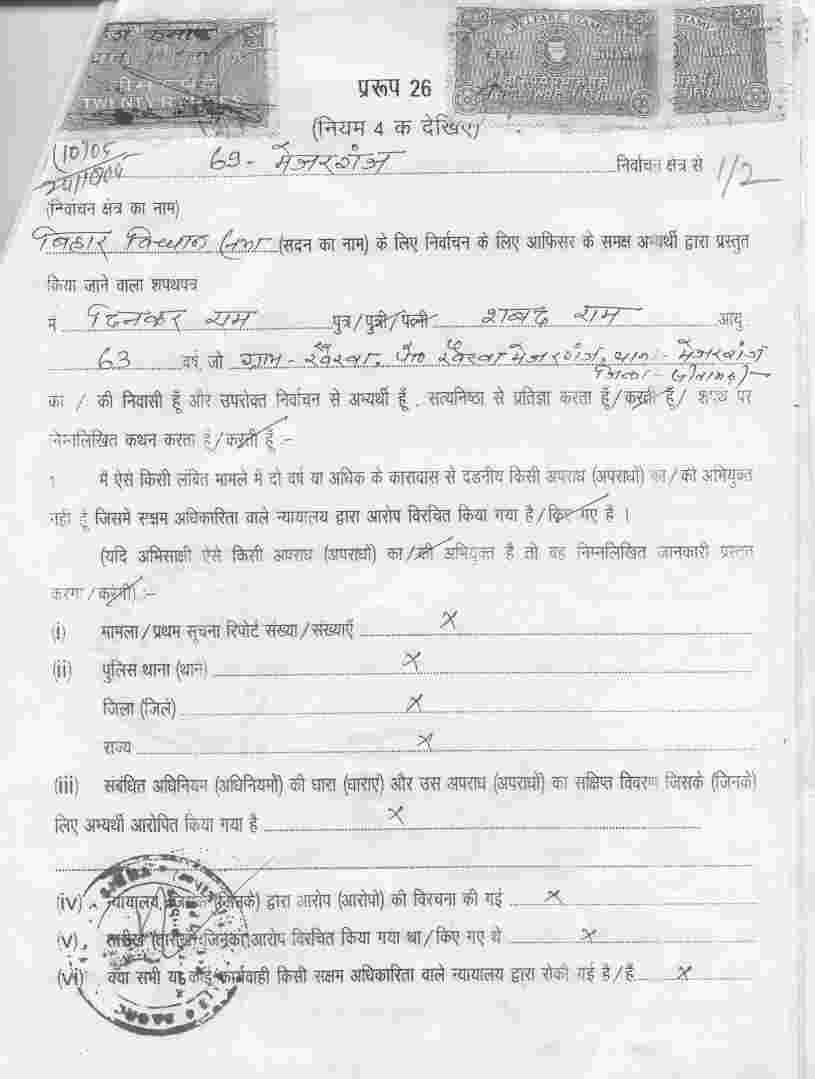 TWENTY RUPEES
2.50 WELFARE STAMP
STAMP 2.50
BIHAR
प्ररूप 26
(नियम 4 क देखिए)
69 - मेजरगंज निर्वाचन क्षेत्र से 1/2
(निर्वाचन क्षेत्र का नाम)
बिहार विधान सभा (सदन का नाम) के लिए निर्वाचन के लिए आफिसर के समक्ष अभ्यर्थी द्वारा प्रस्तुत
किया जाने वाला शपथपत्र
मं दिनकर राम पुत्र/पुत्री/पत्नी शबद राम आयु
63 वर्ष जो ग्राम - खैरवा, पो० खैरवा मेजरगंज, थाना - मेजरगंज
जिला - सीतामढ़ी
का / की निवासी हूँ और उपरोक्त निर्वाचन से अभ्यर्थी हूँ . सत्यनिष्ठा से प्रतिज्ञा करता हूँ/करती हूँ/ शपथ पर
निम्नलिखित कथन करता हूँ/करती हूँ :-
1 में ऐसे किसी लंबित मामले में दो वर्ष या अधिक के कारावास से दडनीय किसी अपराध (अपराधों) का/की अभियुक्त
नहीं हूँ जिसमें सक्षम अधिकारिता वाले न्यायालय द्वारा आरोप विरचित किया गया है/किए गए है ।
(यदि अभिसाक्षी ऐसे किसी अपराध (अपराधों) का/की अभियुक्त है तो वह निम्नलिखित जानकारी प्रस्तुत
करेगा/करेगी) :-
(i) मामला/प्रथम सूचना रिपोर्ट संख्या/संख्याएँ x
(ii) पुलिस थाना (थाने) x
जिला (जिले) x
राज्य x
(iii) संबंधित अधिनियम (अधिनियमों) की धारा (धाराएं) और उस अपराध (अपराधों) का संक्षिप्त विवरण जिसके (जिनके)
लिए अभ्यर्थी आरोपित किया गया है x
(iv) न्यायालय, जिसके (जिनके) द्वारा आरोप (आरोपों) की विरचना की गई x
(v) तारीख (तारीखें) आरोप विरचित किया गया था/किए गए थे x
(vi) क्या सभी या कोई कार्यवाही किसी सक्षम अधिकारिता वाले न्यायालय द्वारा रोकी गई है/हैं x